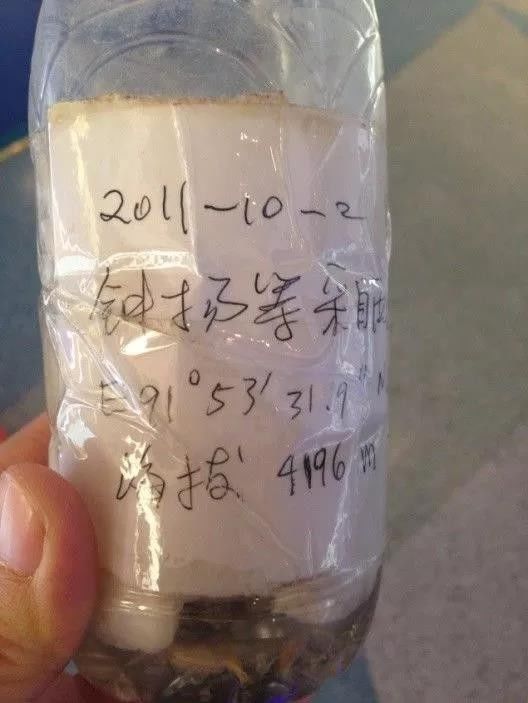 2011-10-2
钟扬等采
E 91°53′31.9″ N
海拔 4196 m